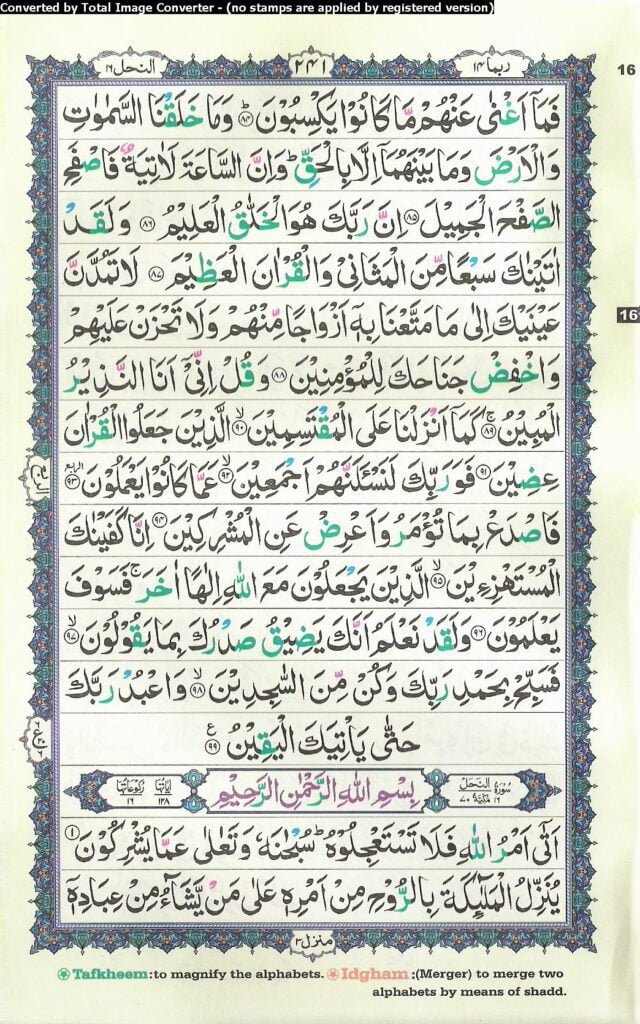 Converted by Total Image Converter - (no stamps are applied by registered version)
ربما ١٤
٢٤١
النحل ١٦
16
فَمَاۤ اَغْنٰى عَنْهُمْ مَّا كَانُوْا يَكْسِبُوْنَ ؕ۝۸۴ وَمَا خَلَقْنَا السَّمٰوٰتِ
وَالْاَرْضَ وَمَا بَيْنَهُمَاۤ اِلَّا بِالْحَقِّ ؕ وَاِنَّ السَّاعَةَ لَاٰتِيَةٌ فَاصْفَحِ
الصَّفْحَ الْجَمِيْلَ ۝۸۵ اِنَّ رَبَّكَ هُوَ الْخَلّٰقُ الْعَلِيْمُ ۝۸۶ وَلَقَدْ
اٰتَيْنٰكَ سَبْعًا مِّنَ الْمَثَانِىْ وَالْقُرْاٰنَ الْعَظِيْمَ ۝۸۷ لَا تَمُدَّنَّ
16
عَيْنَيْكَ اِلٰى مَا مَتَّعْنَا بِهٖۤ اَزْوَاجًا مِّنْهُمْ وَلَا تَحْزَنْ عَلَيْهِمْ
وَاخْفِضْ جَنَاحَكَ لِلْمُؤْمِنِيْنَ ۝۸۸ وَقُلْ اِنِّىْۤ اَنَا النَّذِيْرُ
الْمُبِيْنُ ۚ۝۸۹ كَمَاۤ اَنْزَلْنَا عَلَى الْمُقْتَسِمِيْنَ ۙ۝۹۰ الَّذِيْنَ جَعَلُوا الْقُرْاٰنَ
عِضِيْنَ ۝۹۱ فَوَرَبِّكَ لَنَسْئَلَنَّهُمْ اَجْمَعِيْنَ ۙ۝۹۲ عَمَّا كَانُوْا يَعْمَلُوْنَ ۝۹۳ الربع
الربع
فَاصْدَعْ بِمَا تُؤْمَرُ وَاَعْرِضْ عَنِ الْمُشْرِكِيْنَ ۝۹۴ اِنَّا كَفَيْنٰكَ
الْمُسْتَهْزِءِيْنَ ۙ۝۹۵ الَّذِيْنَ يَجْعَلُوْنَ مَعَ اللّٰهِ اِلٰهًا اٰخَرَ ۚ فَسَوْفَ
يَعْلَمُوْنَ ۝۹۶ وَلَقَدْ نَعْلَمُ اَنَّكَ يَضِيْقُ صَدْرُكَ بِمَا يَقُوْلُوْنَ ۙ۝۹۷
فَسَبِّحْ بِحَمْدِ رَبِّكَ وَكُنْ مِّنَ السّٰجِدِيْنَ ۙ۝۹۸ وَاعْبُدْ رَبَّكَ
حَتّٰى يَاْتِيَكَ الْيَقِيْنُ ۝۹۹ ع
سورة النحل ١٦ مكية ٧٠
بِسْمِ اللّٰهِ الرَّحْمٰنِ الرَّحِيْمِ
اٰياتها ١٢٨ ركوعاتها ١٦
اَتٰۤى اَمْرُ اللّٰهِ فَلَا تَسْتَعْجِلُوْهُ ؕ سُبْحٰنَهٗ وَتَعٰلٰى عَمَّا يُشْرِكُوْنَ ۝۱
يُنَزِّلُ الْمَلٰٓئِكَةَ بِالرُّوْحِ مِنْ اَمْرِهٖ عَلٰى مَنْ يَّشَآءُ مِنْ عِبَادِهٖۤ
منزل ٣
Tafkheem :to magnify the alphabets. Idgham :(Merger) to merge two
alphabets by means of shadd.